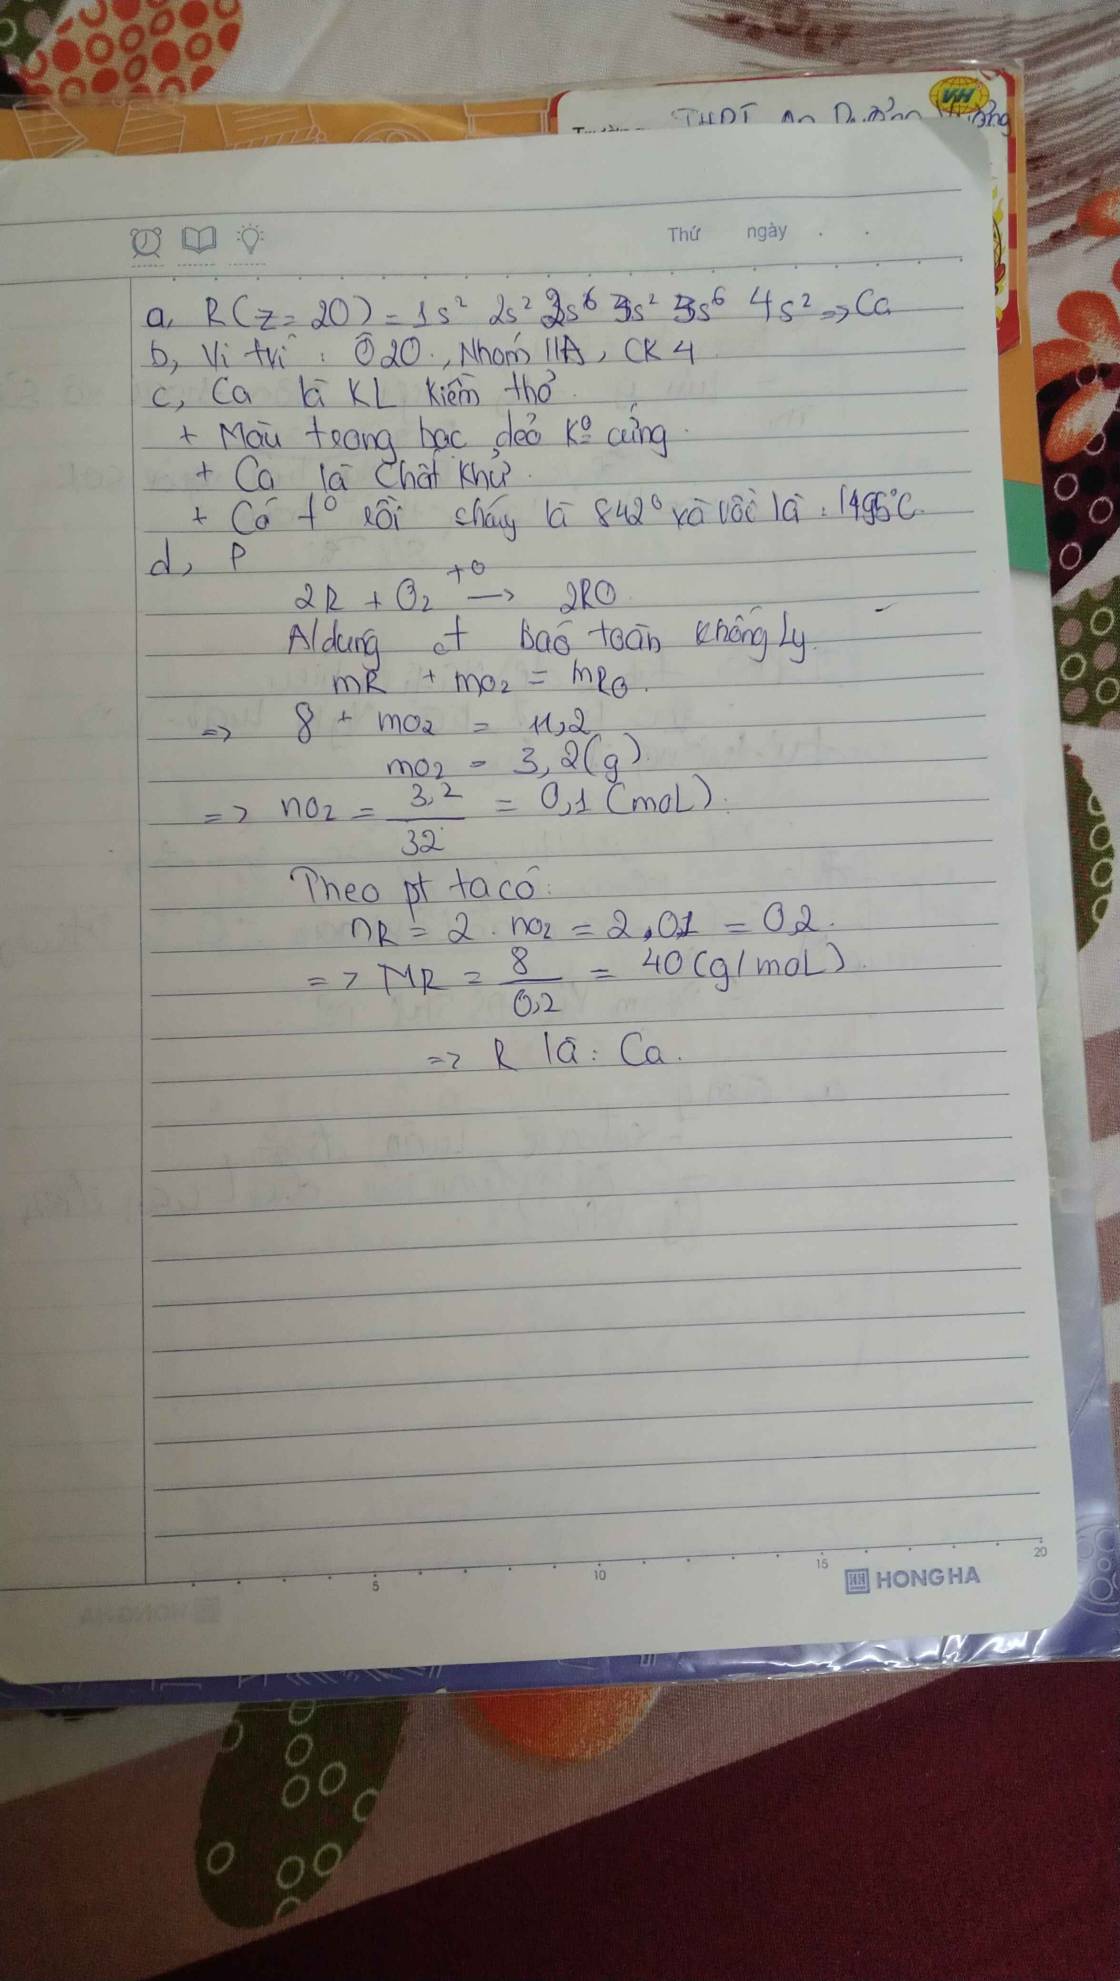 VH
THPT An Dương Vương
Thứ ngày . .
a, R(z=20) = 1s² 2s² 2s⁶ 3s² 3s⁶ 4s² => Ca
b, Vi trí : Ô20., Nhóm IIA, CK4
c, Ca là KL kiềm thổ.
+ Màu trang bạc, dẻo Kº cứng.
+ Ca là Chất khử.
+ Có tº sôi cháy là 842º và vôi là : 1495ºC.
d, P
2R + O₂ +º → 2RO
Aldung ct baỏ toàn không Ly.
mR + mO₂ = mRO.
=> 8 + mO₂ = 11,2
mO₂ = 3,2(g)
=> nO₂ = 3,2/32 = 0,1 (moL).
Theo pt ta có:
nR = 2 . nO₂ = 2.01 = 0,2.
=> MR = 8/0,2 = 40(g/moL).
=> R là: Ca.
5 10 15 20
HONG HA